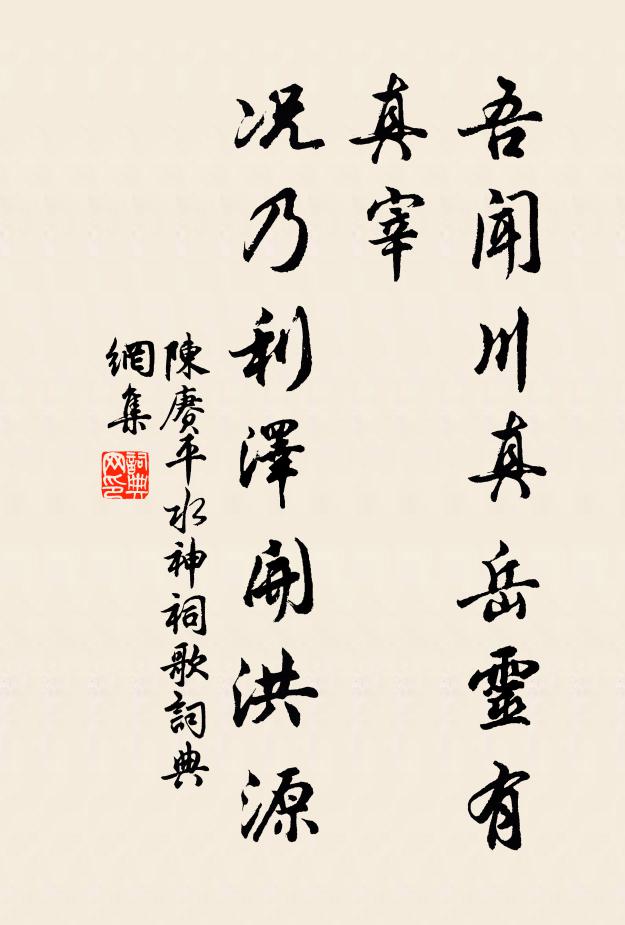 吾聞川真岳靈有
真宰
况乃利澤開洪源
陳賡平水神祠歌詞典
網集
詞典
网印